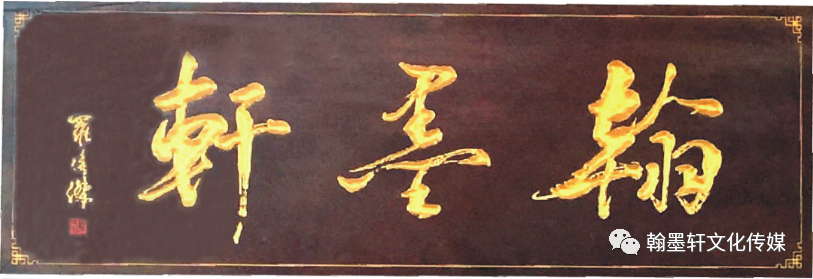 翰墨軒
羅偉傑
翰墨轩文化传媒